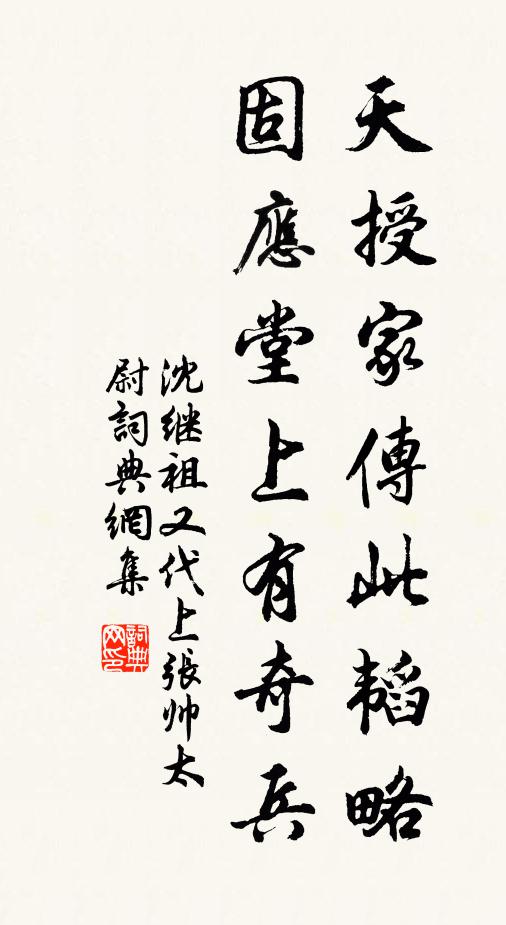 天授家傳此韜略
固應堂上有奇兵
沈继祖又代上張帅太
尉詞典網集
詞典
网印